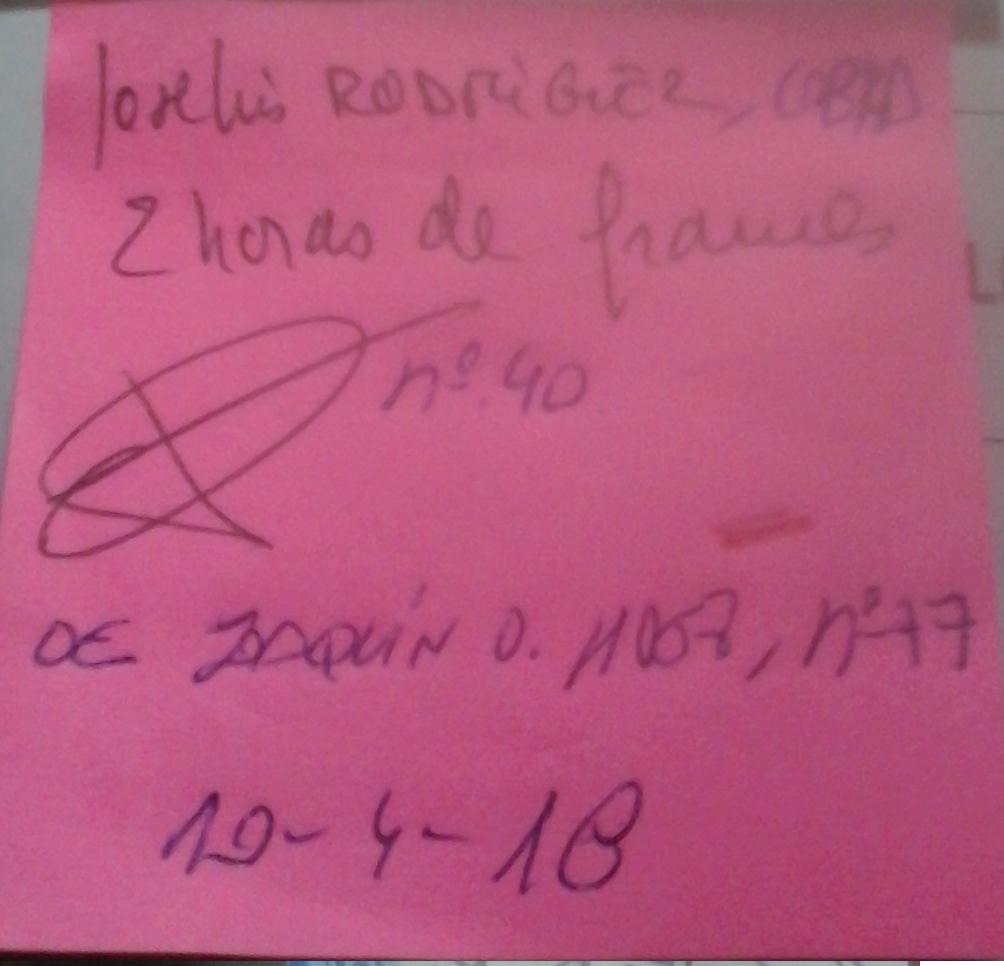 Joseluis RODRÍGUEZ,
2 horas de francés
nº 40
DE JOAQUÍN O. nº 77
10-4-18